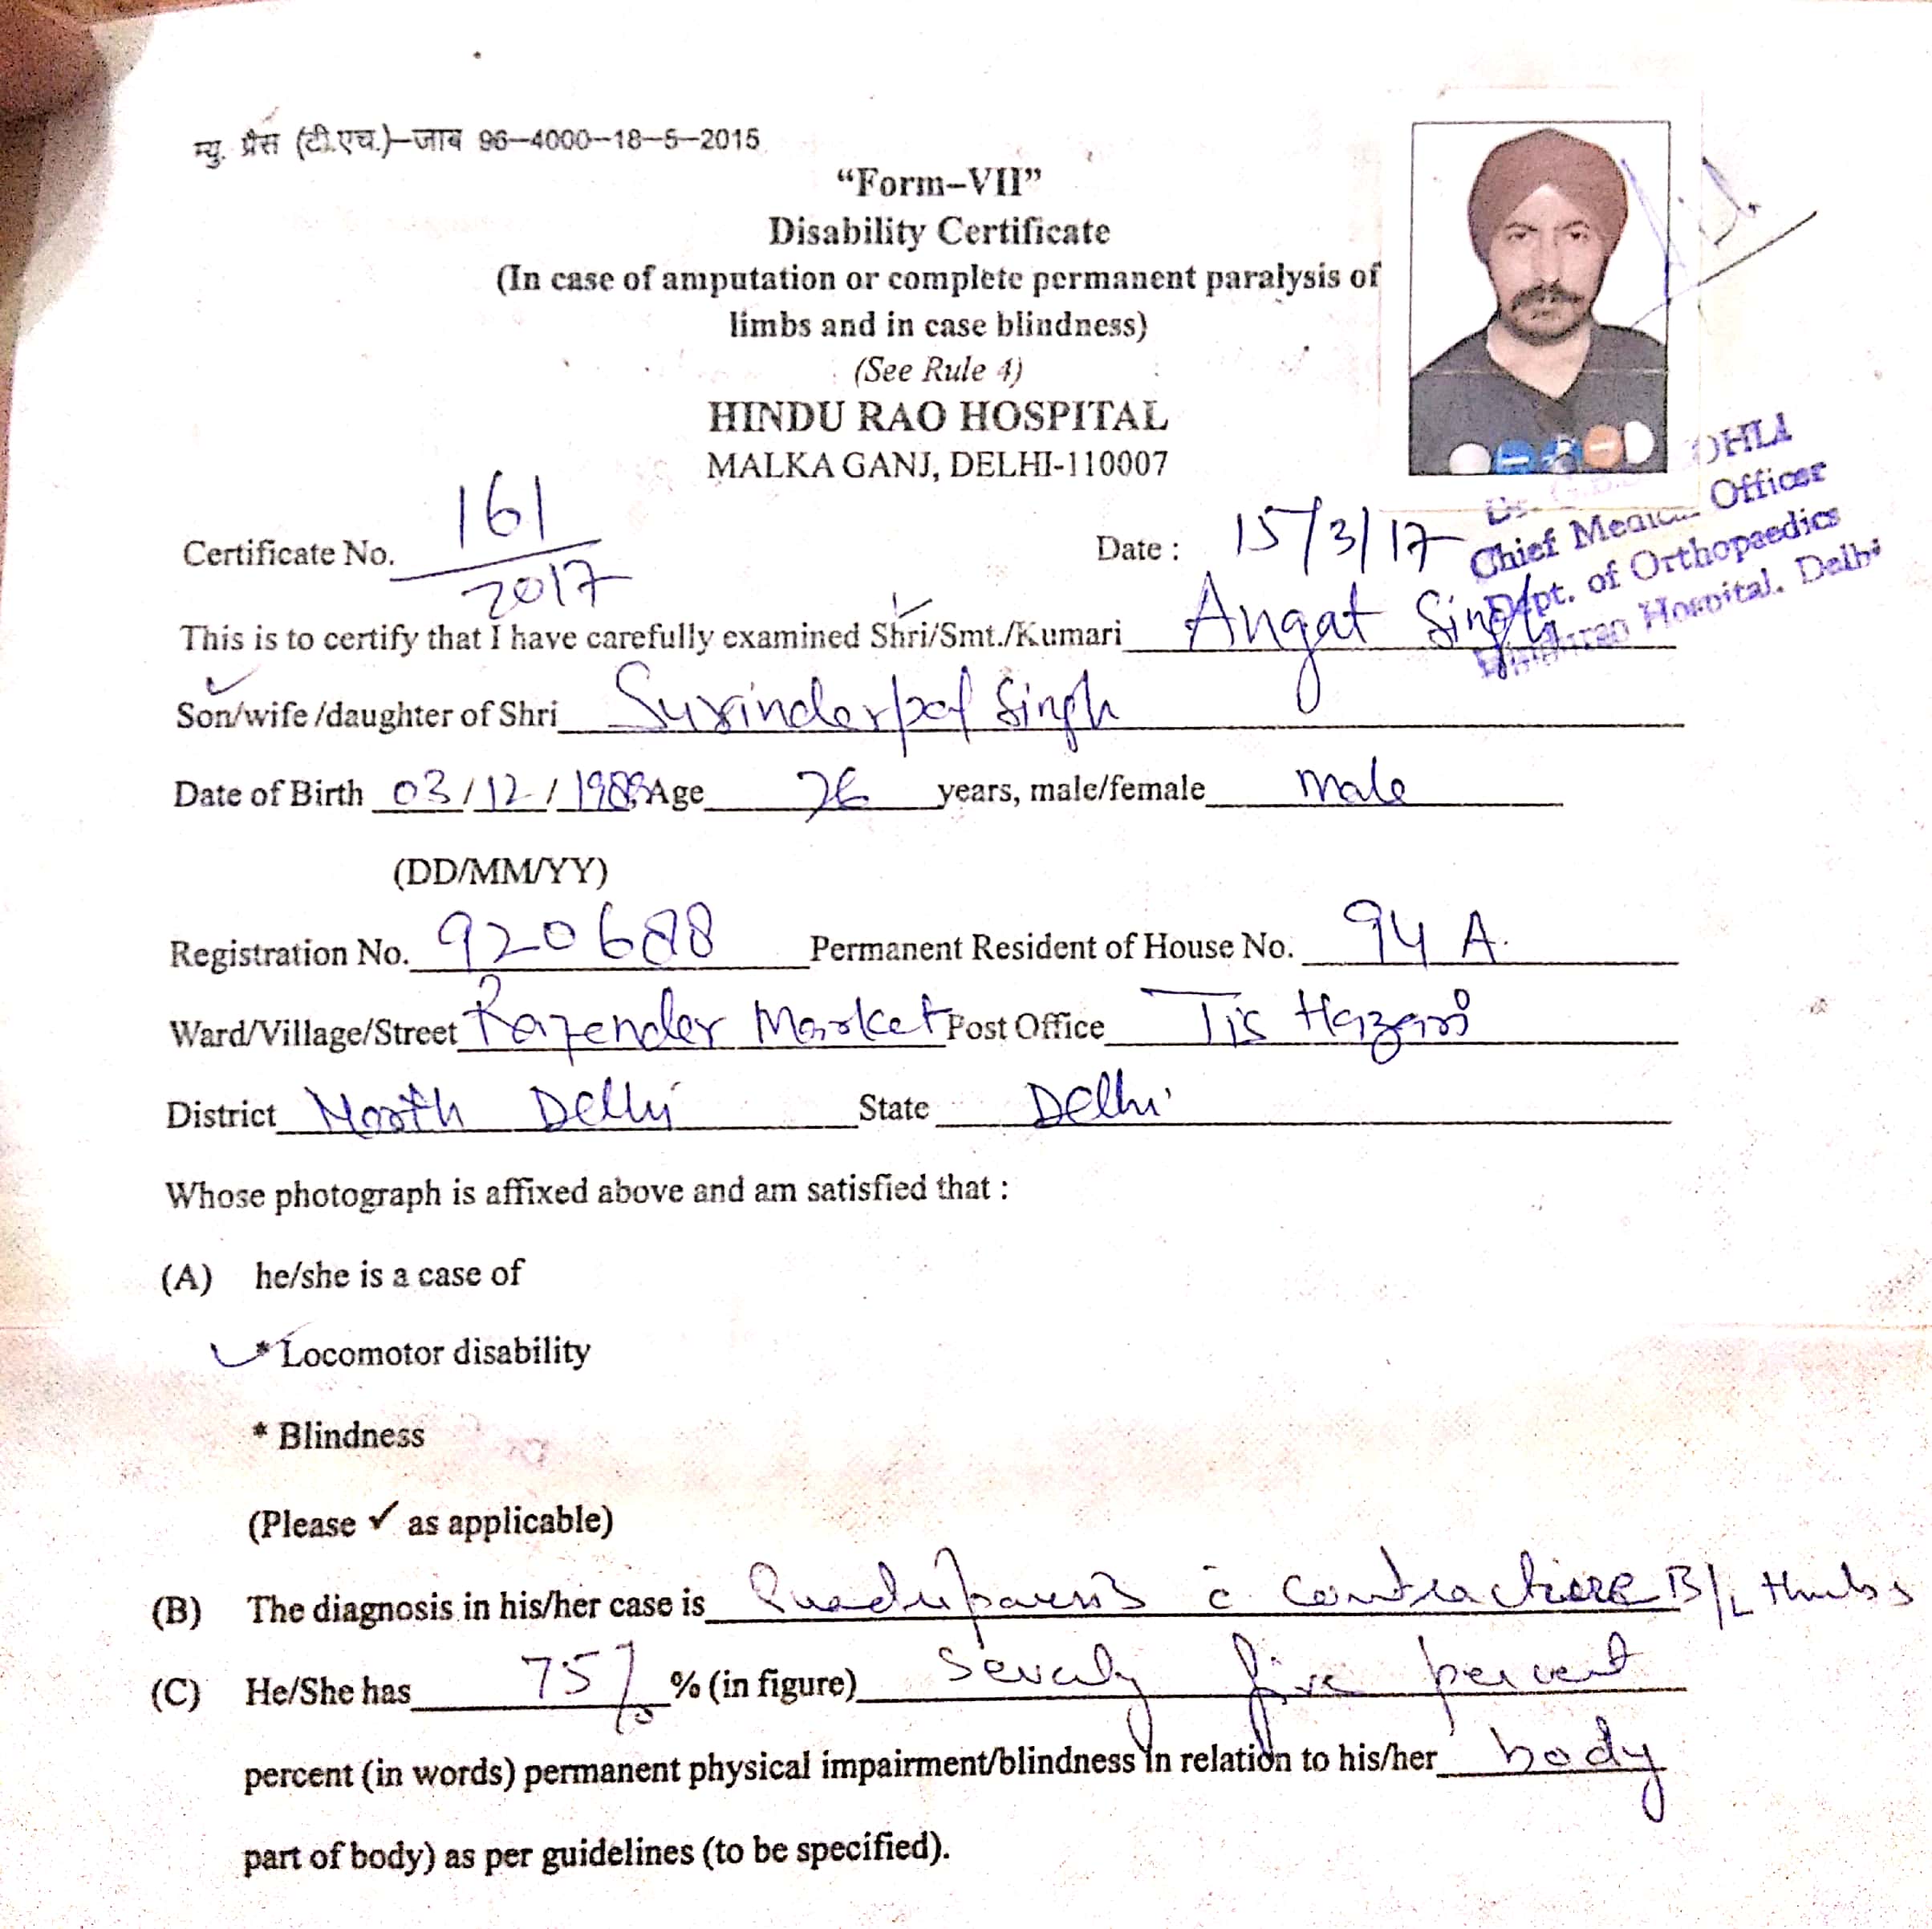 म्यु. प्रैस (टी.एच.)–जाब 96–4000–18–5–2015
“Form–VII”
Disability Certificate
(In case of amputation or complete permanent paralysis of
limbs and in case blindness)
(See Rule 4)
HINDU RAO HOSPITAL
MALKA GANJ, DELHI-110007
Certificate No. 161/2017 Date : 15/3/17
Chief Medical Officer
Dept. of Orthopaedics
Hospital. Delhi
This is to certify that I have carefully examined Shri/Smt./Kumari Angat Singh
Son/wife /daughter of Shri Surinderpal Singh
Date of Birth 03/12/ Age 26 years, male/female male
(DD/MM/YY)
Registration No. 920688 Permanent Resident of House No. 94 A.
Ward/Village/Street Razender Market Post Office Tis Hazari
District North Delhi State Delhi
Whose photograph is affixed above and am satisfied that :
(A) he/she is a case of
* Locomotor disability
* Blindness
(Please ✓ as applicable)
(B) The diagnosis in his/her case is Quadriparesis c̄ contracture B/L
(C) He/She has 75% % (in figure) Seventy five percent
percent (in words) permanent physical impairment/blindness in relation to his/her body
part of body) as per guidelines (to be specified).